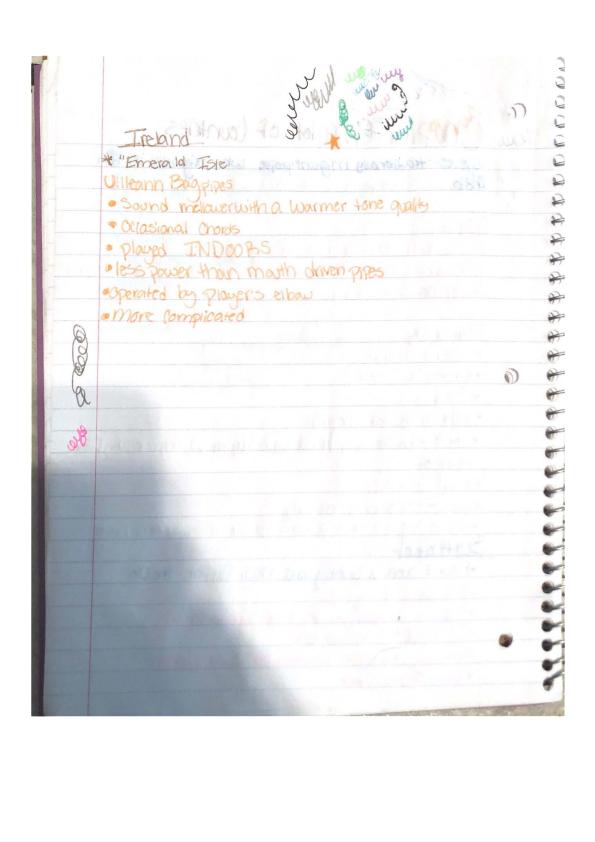 Ireland
* "Emerald Isle
Uilleann Bagpipes
• Sound mellower with a warmer tone quality
• Occasional Chords
• played INDOORS
• less power than mouth driven pipes
• Operated by player's elbow
• More complicated